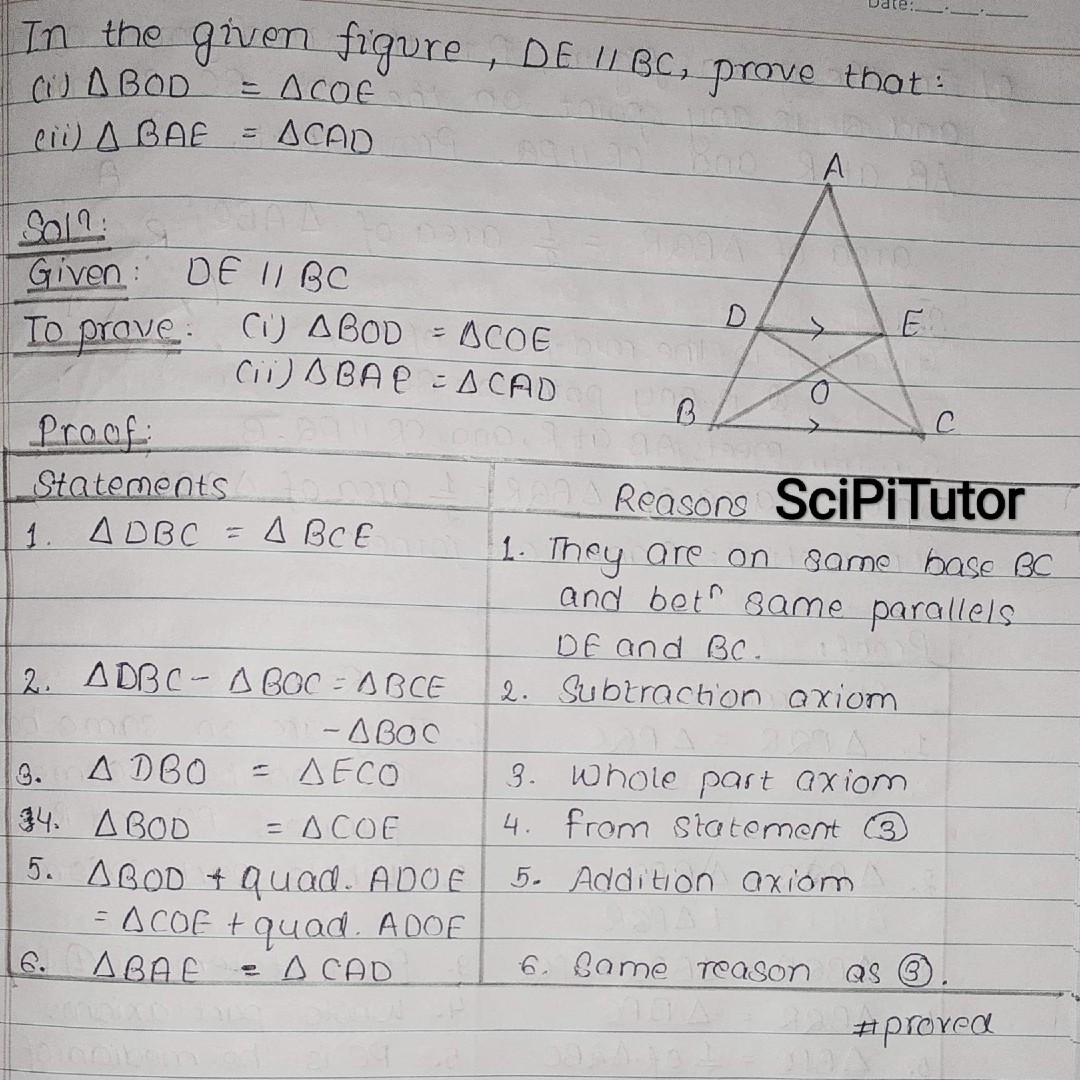 Date:
In the given figure, DE // BC, prove that:
(i) Δ BOD = ΔCOE
(ii) Δ BAE = ΔCAD
A
Solⁿ:
Given: DE // BC
To prove: (i) ΔBOD = ΔCOE
D E
(ii) ΔBAE = ΔCAD
O
B C
Proof:
Statements Reasons SciPiTutor
1. ΔDBC = Δ BCE 1. They are on same base BC
and betⁿ same parallels
DE and BC.
2. ΔDBC - ΔBOC = ΔBCE 2. Subtraction axiom
- ΔBOC
3. Δ DBO = ΔECO 3. Whole part axiom
4. ΔBOD = ΔCOE 4. from statement ③
5. ΔBOD + quad. ADOE 5. Addition axiom
= ΔCOE + quad. ADOE
6. ΔBAE = Δ CAD 6. Same reason as ③.
#proved